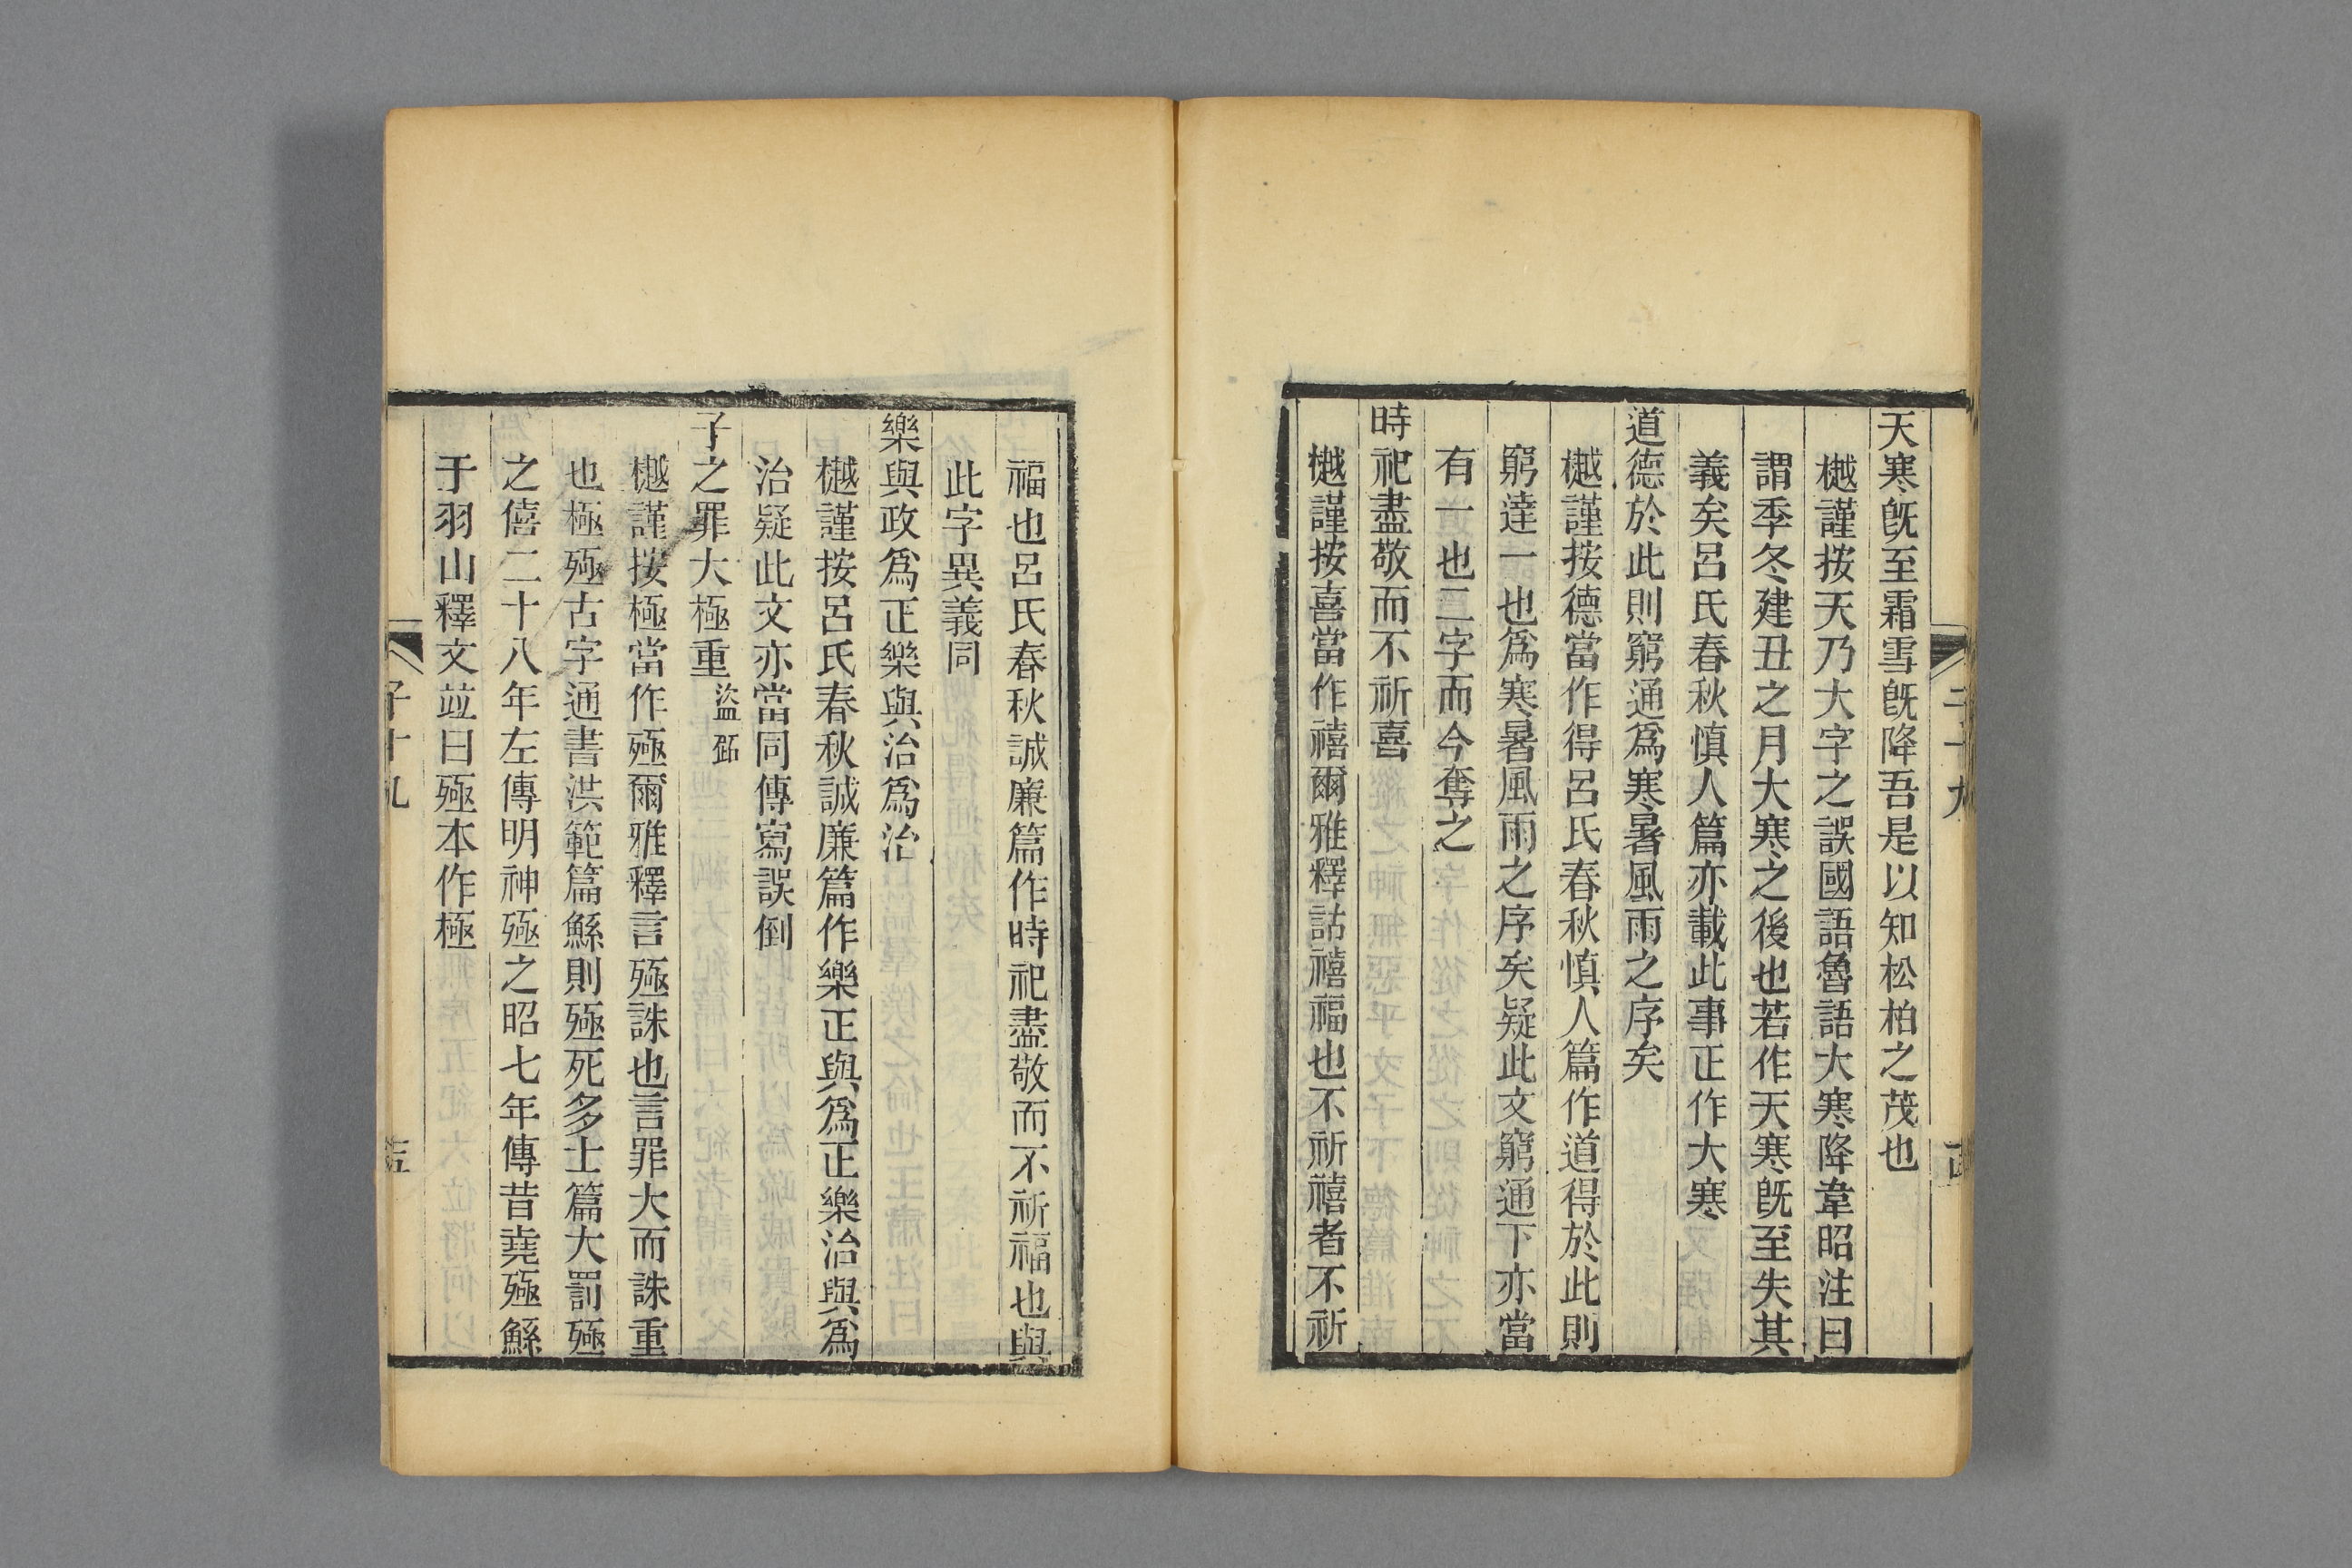 天寒旣至霜雪旣降吾是以知松柏之茂也
樾謹按天乃大字之誤國語魯語大寒降韋昭注曰
謂季冬建丑之月大寒之後也若作天寒旣至失其
義矣呂氏春秋慎人篇亦載此事正作大寒
道德於此則窮通爲寒暑風雨之序矣
樾謹按德當作得呂氏春秋慎人篇作道得於此則
窮達一也爲寒暑風雨之序矣疑此文窮通下亦當
有一也二字而今奪之
時祀盡敬而不祈喜
樾謹按喜當作禧爾雅釋詁禧福也不祈禧者不祈
福也呂氏春秋誠廉篇作時祀盡敬而不祈福也與
此字異義同
樂與政爲正樂與治爲治
樾謹按呂氏春秋誠廉篇作樂正與爲正樂治與爲
治疑此文亦當同傳寫誤倒
子之罪大極重 盜跖
樾謹按極當作殛爾雅釋言殛誅也言罪大而誅重
也極殛古字通書洪範篇鯀則殛死多士篇大罰殛
之僖二十八年左傳明神殛之昭七年傳昔堯殛鯀
于羽山釋文竝曰殛本作極
子十九